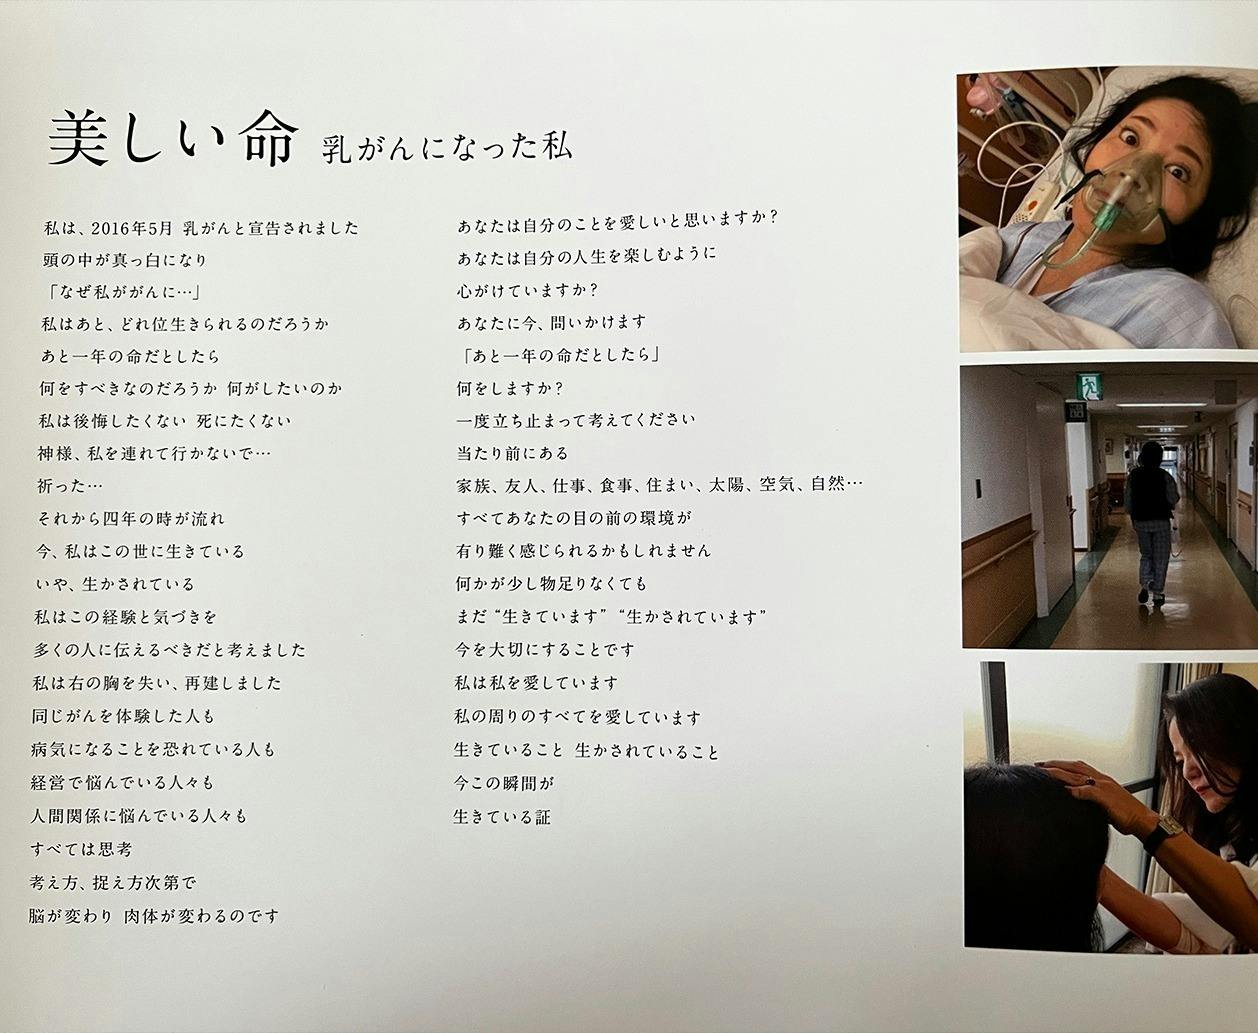 美しい命 乳がんになった私
私は、2016年5月 乳がんと宣告されました
頭の中が真っ白になり
「なぜ私ががんに…」
私はあと、どれ位生きられるのだろうか
あと一年の命だとしたら
何をすべきなのだろうか 何がしたいのか
私は後悔したくない 死にたくない
神様、私を連れて行かないで…
祈った…
それから四年の時が流れ
今、私はこの世に生きている
いや、生かされている
私はこの経験と気づきを
多くの人に伝えるべきだと考えました
私は右の胸を失い、再建しました
同じがんを体験した人も
病気になることを恐れている人も
経営で悩んでいる人々も
人間関係に悩んでいる人々も
すべては思考
考え方、捉え方次第で
脳が変わり 肉体が変わるのです
あなたは自分のことを愛しいと思いますか？
あなたは自分の人生を楽しむように
心がけていますか？
あなたに今、問いかけます
「あと一年の命だとしたら」
何をしますか？
一度立ち止まって考えてください
当たり前にある
家族、友人、仕事、食事、住まい、太陽、空気、自然…
すべてあなたの目の前の環境が
有り難く感じられるかもしれません
何かが少し物足りなくても
まだ “生きています” “生かされています”
今を大切にすることです
私は私を愛しています
私の周りのすべてを愛しています
生きていること 生かされていること
今この瞬間が
生きている証